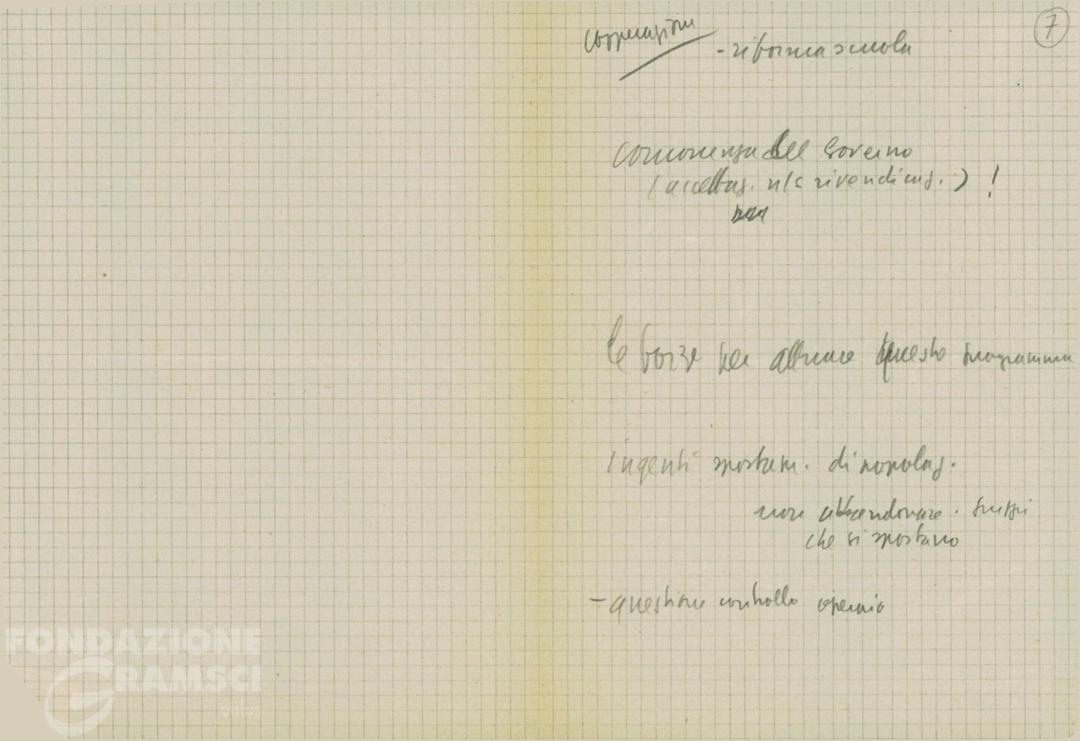 7
cooperazione
- riforma scuola
concorrenza del Governo
(accettaz. n/s rivendicaz.) !
le forze per attuare questo programma
ingenti spostam. di popolaz.
non abbandonare. gruppi
che si spostano
- questione controllo operaio
FONDAZIONE
GRAMSCI
onlus